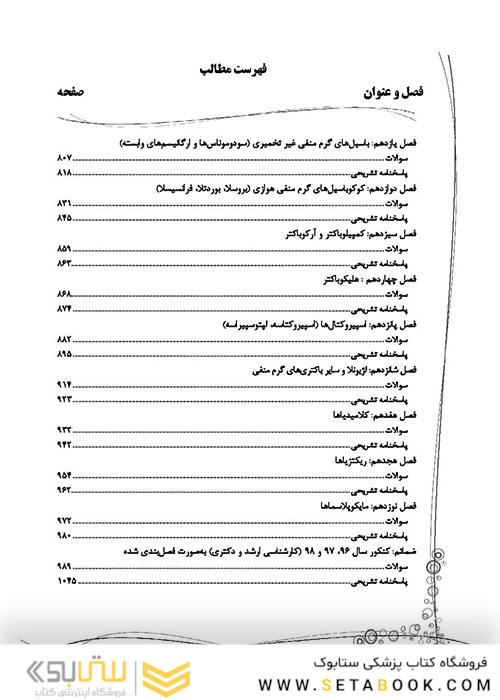 فهرست مطالب
فصل و عنوان صفحه
فصل یازدهم: باسیل‌های گرم منفی غیر تخمیری (سودوموناس‌ها و ارگانیسم‌های وابسته)
سوالات ........ ۸۰۷
پاسخنامه تشریحی ........ ۸۱۸
فصل دوازدهم: کوکوباسیل‌های گرم منفی هوازی (بروسلا، بوردتلا، فرانسیسلا)
سوالات ........ ۸۳۱
پاسخنامه تشریحی ........ ۸۴۵
فصل سیزدهم: کمپیلوباکتر و آرکوباکتر
سوالات ........ ۸۵۹
پاسخنامه تشریحی ........ ۸۶۳
فصل چهاردهم : هلیکوباکتر
سوالات ........ ۸۶۸
پاسخنامه تشریحی ........ ۸۷۴
فصل پانزدهم: اسپیروکتال‌ها (اسپیروکتاسه، لپتوسپیراسه)
سوالات ........ ۸۸۲
پاسخنامه تشریحی ........ ۸۹۵
فصل شانزدهم: لژیونلا و سایر باکتری‌های گرم منفی
سوالات ........ ۹۱۴
پاسخنامه تشریحی ........ ۹۲۳
فصل هفدهم: کلامیدیاها
سوالات ........ ۹۳۲
پاسخنامه تشریحی ........ ۹۴۲
فصل هجدهم: ریکتزیاها
سوالات ........ ۹۵۴
پاسخنامه تشریحی ........ ۹۶۲
فصل نوزدهم: مایکوپلاسماها
سوالات ........ ۹۷۲
پاسخنامه تشریحی ........ ۹۸۰
ضمائم: کنکور سال ۹۶، ۹۷ و ۹۸ (کارشناسی ارشد و دکتری) به‌صورت فصل‌بندی شده
سوالات ........ ۹۸۹
پاسخنامه تشریحی ........ ۱۰۴۵
فروشگاه کتاب پزشکی ستابوک
WWW.SETABOOK.COM
ستابوک
فروشگاه اینترنتی کتاب